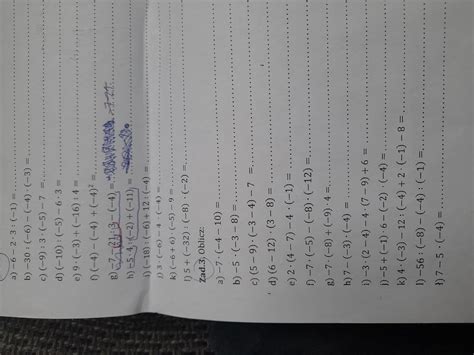 a) −6 − 2 · 3 : (−1) =
b) −30 : (−6) − (−4) · (−3) =
c) (−9) : 3 · (−5) −7 =
d) (−10) · (−5) − 6 · 3 =
e) 9 · (−3) + (−16) : 4 =
f) (−4) − (−4) + (−4)² =
g) −7 − 21 : 3 − (−4) =
h) −5 · 4 · (−2) + (−11) =
i) (−18) : (−6) + 12 : (−4) =
j) 3 · (−6) − 4 · (−4) =
k) (−6 + 6) · (−5) − 9 =
l) 5 + (−32) : (−8) · (−2) =
Zad.3. Oblicz:
a) −7 · (−4 − 10) =
b) −5 · (−3 − 8) =
c) (5 − 9) · (−3 − 4) − 7 =
d) (6 − 12) · (3 − 8) =
e) 2 · (4 − 7) − 4 · (−1) =
f) −7 · (−5) · (−8) · (−12) =
g) −7 · (−8) + (−9) · 4 =
h) 7 − (−3) · (−4) =
i) −3 · (2 − 4) − 4 · (7 − 9) + 6 =
j) −5 + (−1) · 6 · (−2) · (−4) =
k) 4 · (−3) − 12 : (−4) + 2 · (−1) − 8 =
l) −56 : (−8) − (−4) : (−1) =
ł) 7 − 5 · (−4) =